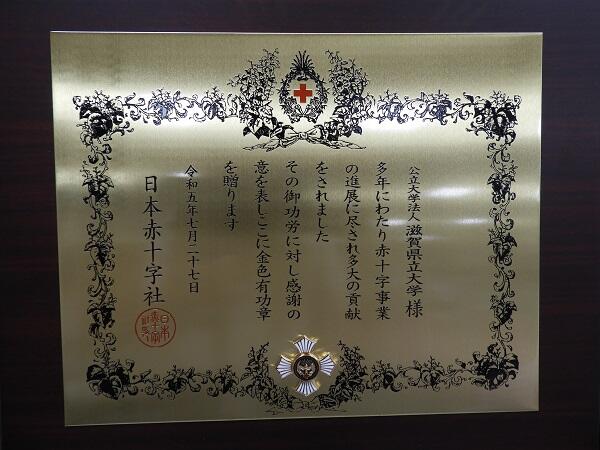 公立大学法人 滋賀県立大学 様
多年にわたり赤十字事業
の進展に尽され多大の貢献
をされました
その御功労に対し感謝の
意を表しここに金色有功章
を贈ります
令和五年七月二十七日
日本赤十字社